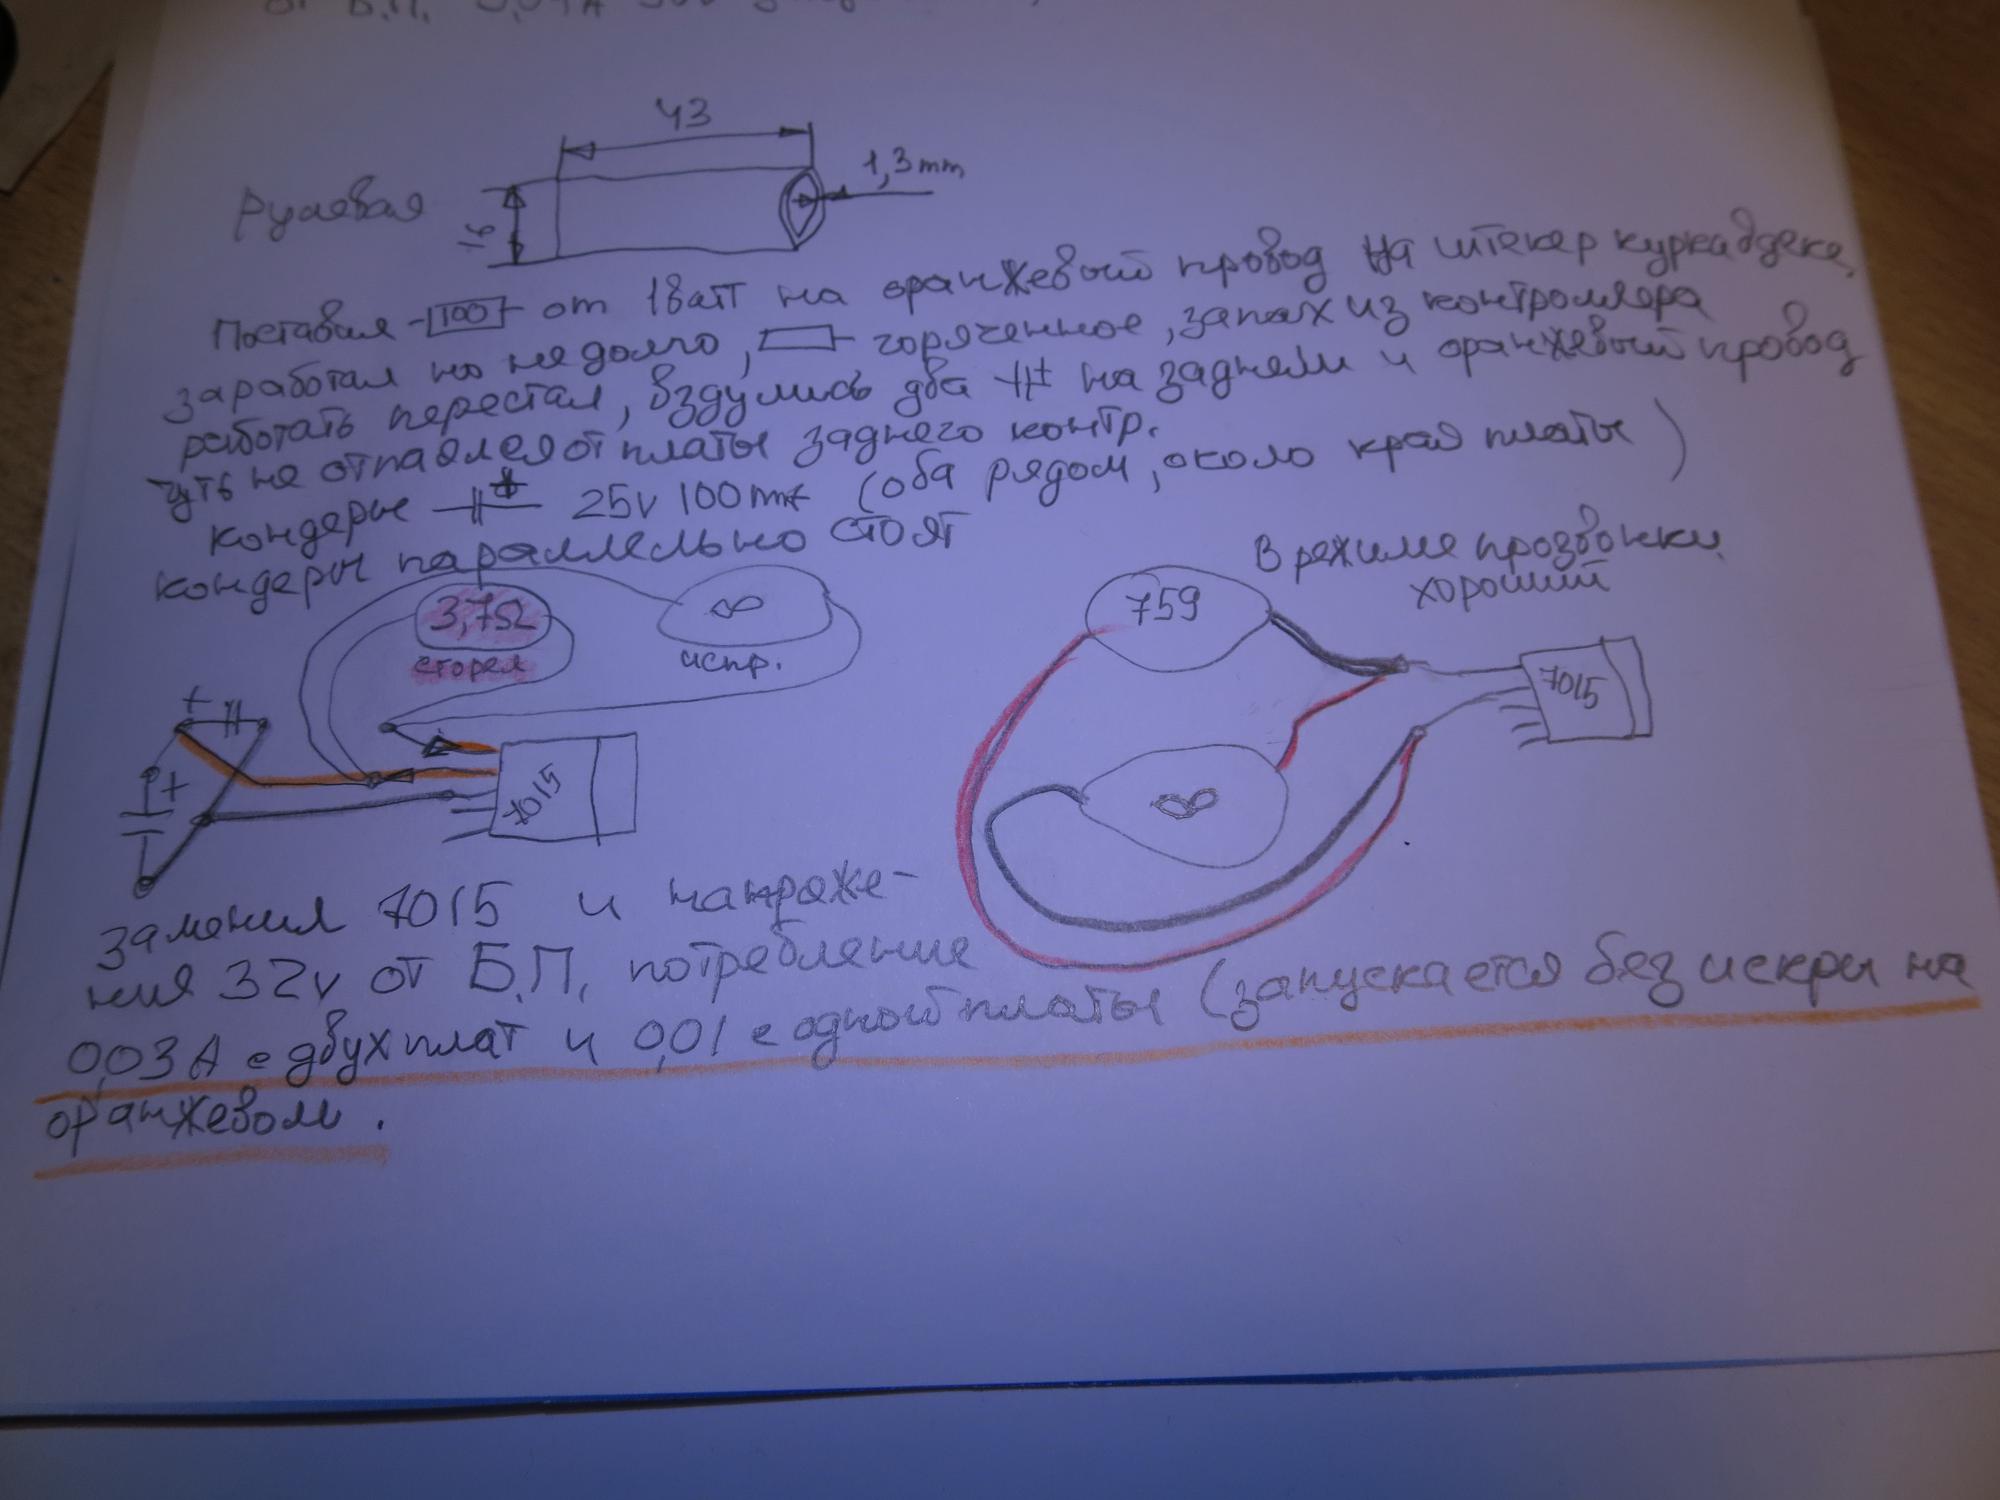 от Б.П.
43
1,3mm
Рулевая
16
Поставил 100 от 1ватт на оранжевый провод на штекер курка в деке,
заработал но не долго, горяченное, запах из контроллера
работать перестал, вздулись два + на заднем и оранжевый провод
чуть не отпаялся от платы заднего контр.
кондеры + 25v 100mf (оба рядом, около края платы)
кондеры параллельно стоят
В режиме прозвонки
хороший
3,7Ω
∞
759
сгорел
испр.
+
7015
7015
+
∞
заменил 7015 и напряже-
ния 32v от Б.П, потребление
0,03А с двух плат и 0,01 с одной платы (запускается без искры на
оранжевом.